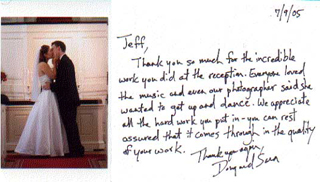 7/9/05
Jeff,
Thank you so much for the incredible
work you did at the reception. Everyone loved
the music and even our photographer said she
wanted to get up and dance. We appreciate
all the hard work you put in - you can rest
assured that it comes through in the quality
of your work.
Thank you again,
and